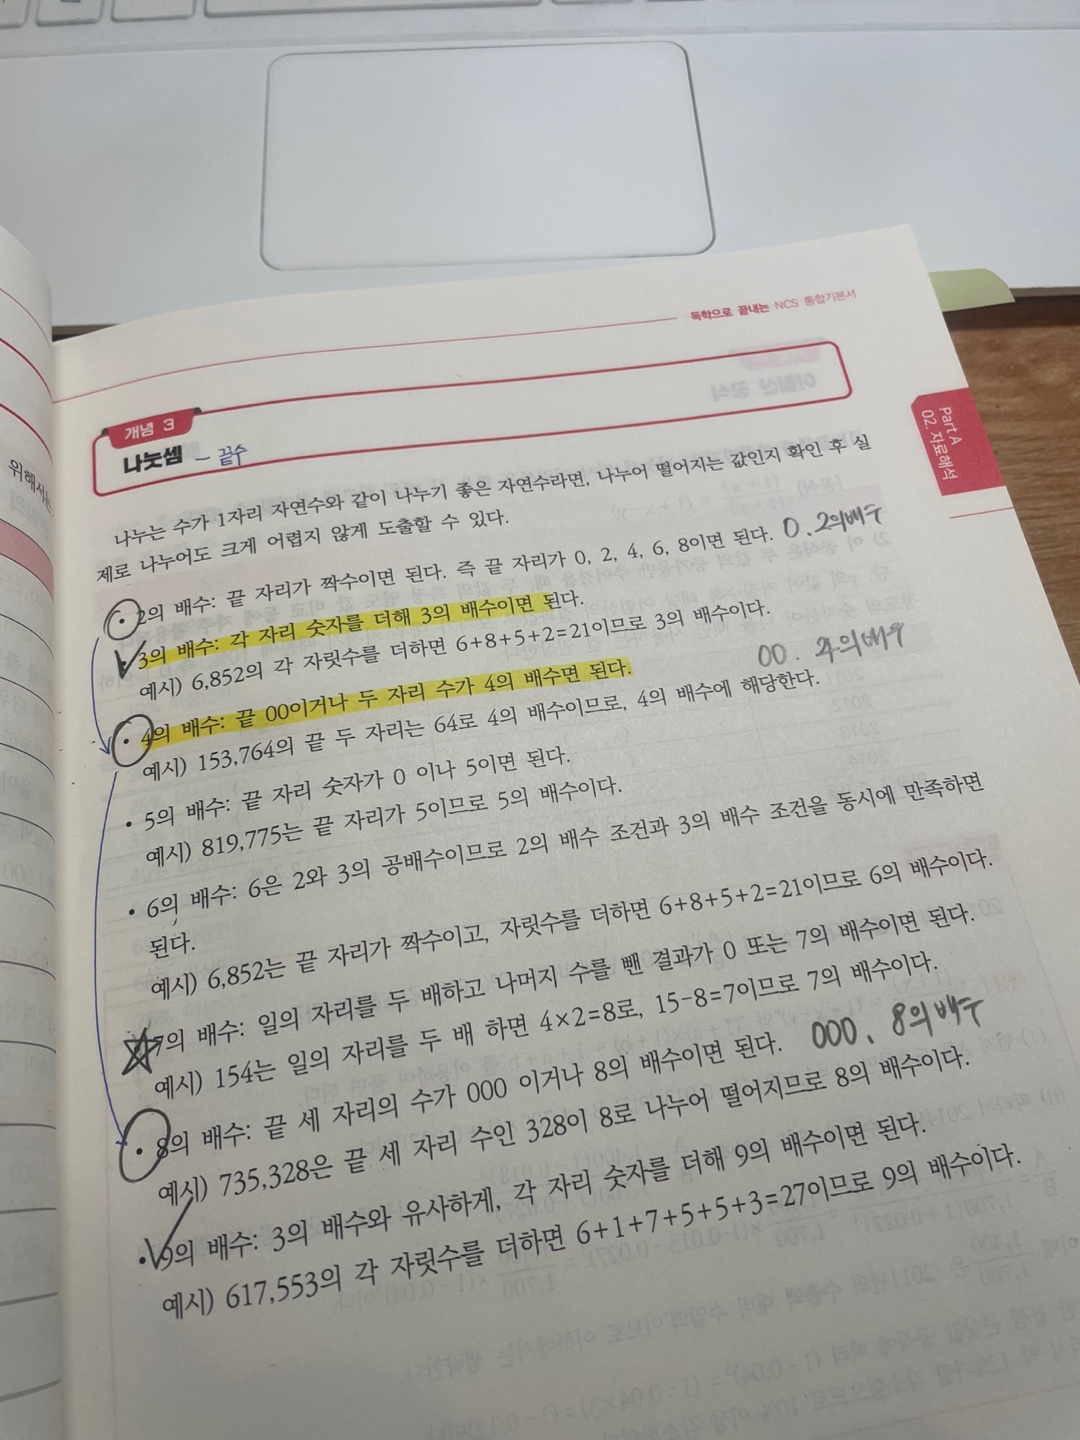 독학으로 끝내는 NCS 통합기본서
Part A
02. 자료해석
위해서는
개념 3
나눗셈 - 끝수
나누는 수가 1자리 자연수와 같이 나누기 좋은 자연수라면, 나누어 떨어지는 값인지 확인 후 실
제로 나누어도 크게 어렵지 않게 도출할 수 있다.
• 2의 배수: 끝 자리가 짝수이면 된다. 즉 끝 자리가 0, 2, 4, 6, 8이면 된다. 0. 2의배수
• 3의 배수: 각 자리 숫자를 더해 3의 배수이면 된다.
예시) 6,852의 각 자릿수를 더하면 6+8+5+2=21이므로 3의 배수이다.
00. 4의배수
• 4의 배수: 끝 00이거나 두 자리 수가 4의 배수면 된다.
예시) 153,764의 끝 두 자리는 64로 4의 배수이므로, 4의 배수에 해당한다.
• 5의 배수: 끝 자리 숫자가 0 이나 5이면 된다.
예시) 819,775는 끝 자리가 5이므로 5의 배수이다.
• 6의 배수: 6은 2와 3의 공배수이므로 2의 배수 조건과 3의 배수 조건을 동시에 만족하면
된다.
예시) 6,852는 끝 자리가 짝수이고, 자릿수를 더하면 6+8+5+2=21이므로 6의 배수이다.
7의 배수: 일의 자리를 두 배하고 나머지 수를 뺀 결과가 0 또는 7의 배수이면 된다.
예시) 154는 일의 자리를 두 배 하면 4×2=8로, 15-8=7이므로 7의 배수이다.
• 8의 배수: 끝 세 자리의 수가 000 이거나 8의 배수이면 된다. 000. 8의배수
예시) 735,328은 끝 세 자리 수인 328이 8로 나누어 떨어지므로 8의 배수이다.
• 9의 배수: 3의 배수와 유사하게, 각 자리 숫자를 더해 9의 배수이면 된다.
예시) 617,553의 각 자릿수를 더하면 6+1+7+5+5+3=27이므로 9의 배수이다.